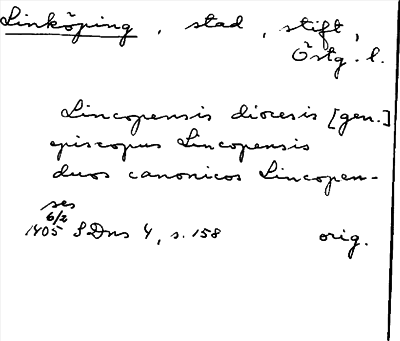 Linköping, stad, stift,
Östg. l.
Lincopensis diocesis [gen.]
episcopus Lincopensis
duos canonicos Lincopen-
ses
6/2
1405 SDns 4, s. 158 orig.